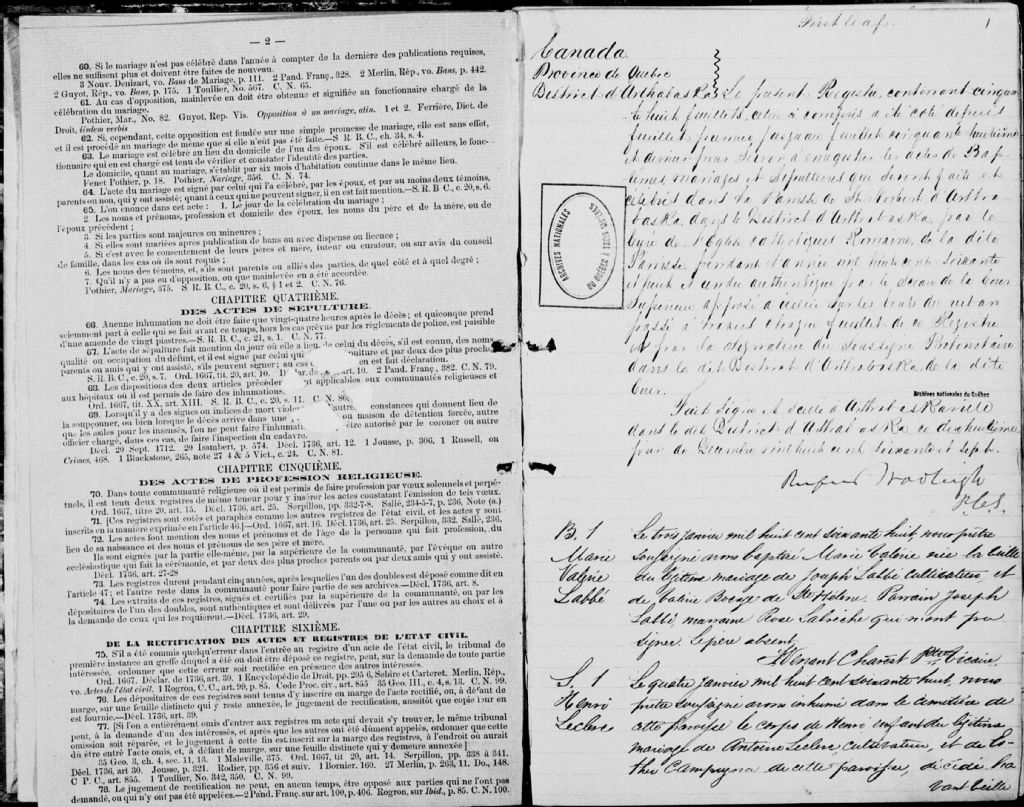 — 2 —
60. Si le mariage n'est pas célébré dans l'année à compter de la dernière des publications requises,
elles ne suffisent plus et doivent être faites de nouveau.
3 Nouv. Denizart, vo. Bans de Mariage, p. 111. 2 Pand. Franç., 328. 2 Merlin, Rép., vo. Bans, p. 442.
2 Guyot, Rép., vo. Bans, p. 175. 1 Toullier, No. 567. C. N. 65.
61. Au cas d'opposition, mainlevée en doit être obtenue et signifiée au fonctionnaire chargé de la
célébration du mariage.
Pothier, Mar., No. 82. Guyot, Rep. Vis. Opposition à un mariage, alin. 1 et 2. Ferrière, Dict. de
Droit, iisdem verbis
62. Si, cependant, cette opposition est fondée sur une simple promesse de mariage, elle est sans effet,
et il est procédé au mariage de même que si elle n'eût pas été faite.—S R. B. C., ch. 34, s. 4.
63. Le mariage est célébré au lieu du domicile de l'un des époux. S'il est célébré ailleurs, le fonc-
tionnaire qui en est chargé est tenu de vérifier et constater l'identité des parties.
Le domicile, quant au mariage, s'établit par six mois d'habitation continue dans le même lieu.
Fenet Pothier, p. 18. Pothier, Mariage, 356. C. N. 74.
64. L'acte du mariage est signé par celui qui l'a célébré, par les époux, et par au moins deux témoins,
parents ou non, qui y ont assisté; quant à ceux qui ne peuvent signer, il en est fait mention.—S. R. B. C., c. 20, s. 6.
65. L'on énonce dans cet acte : 1. Le jour de la célébration du mariage ;
2. Les noms et prénoms, profession et domicile des époux, les noms du père et de la mère, ou de
l'époux précédent ;
3. Si les parties sont majeures ou mineures ;
4. Si elles sont mariées après publication de bans ou avec dispense ou licence ;
5. Si c'est avec le consentement de leurs pères et mère, tuteur ou curateur, ou sur avis du conseil
de famille, dans les cas où ils sont requis ;
6. Les noms des témoins, et, s'ils sont parents ou alliés des parties, de quel côté et à quel degré ;
7. Qu'il n'y a pas eu d'opposition, ou que mainlevée en a été accordée.
Pothier, Mariage, 375. S R. B. C., c. 20, s. 6, § 1 et 2. C. N. 76.
CHAPITRE QUATRIÈME.
DES ACTES DE SEPULTURE.
66. Aucune inhumation ne doit être faite que vingt-quatre heures après le décès ; et quiconque prend
sciemment part à celle qui se fait avant ce temps, hors les cas prévus par les règlements de police, est passible
d'une amende de vingt piastres.—S. R. B. C., c. 21, s. 1. C. N. 77.
67. L'acte de sépulture fait mention du jour où elle a lieu, de celui du décès, s'il est connu, des noms,
qualité ou occupation du défunt, et il est signé par celui qui niture et par deux des plus proches
parents ou amis qui y ont assisté, s'ils peuvent signer; au cas en est fait déclaration.
S. R. B. C., c. 20, s. 7. Ord. 1667, tit. 20, art. 10. art. 10. 2 Pand. Franç., 382. C. N. 79.
68. Les dispositions des deux articles précédents applicables aux communautés religieuses et
aux hôpitaux où il est permis de faire des inhumations.
Ord. 1667, tit. XX, art. XIII, S. R. B. C., c. 20, s. 11. C. N. 80.
69. Lorsqu'il y a des signes ou indices de mort constances qui donnent lieu de
la soupçonner, ou bien lorsque le décès arrive dans une ou maison de détention forcée, autre
que les asiles pour les insensés, l'on ne peut faire l'inhumation être autorisé par le coroner ou autre
officier chargé, dans ces cas, de faire l'inspection du cadavre.
Décl. 20 Sept. 1712. 20 Isambert, p. 574. Décl. 1736, art. 12. 1 Jousse, p. 306. 1 Russell, on
Crimes, 468. 1 Blackstone, 265, note 27 4 & 5 Vict., c. 24. C. N. 81.
CHAPITRE CINQUIÈME.
DES ACTES DE PROFESSION RELIGIEUSE.
70. Dans toute communauté religieuse où il est permis de faire profession par vœux solennels et perpé-
tuels, il est tenu deux registres de même teneur pour y insérer les actes constatant l'émission de tels vœux.
Ord. 1667, titre 20, art. 15. Décl. 1736, art. 25. Serpillon, pp. 332-7-8. Sallé, 234-5-7, p. 236, Note (a.)
71. [Ces registres sont cotés et paraphés comme les autres registres de l'état civil, et les actes y sont
inscrits en la manière exprimée en l'article 46.]—Ord. 1667, art. 16. Décl. 1736, art. 25. Serpillon, 332. Sallé, 236.
72. Les actes font mention des noms et prénoms et de l'âge de la personne qui fait profession, du
lieu de sa naissance et des noms et prénoms de ses père et mère.
Ils sont signés par la partie elle-même, par la supérieure de la communauté, par l'évêque ou autre
ecclésiastique qui fait la cérémonie, et par deux des plus proches parents ou par deux amis qui y ont assisté.
Décl. 1736, art. 27-28
73. Les registres durent pendant cinq années, après lesquelles l'un des doubles est déposé comme dit en
l'article 47; et l'autre reste dans la communauté pour faire partie de ses archives.—Décl. 1736, art. 8.
74. Les extraits de ces registres, signés et certifiés par la supérieure de la communauté, ou par les
dépositaires de l'un des doubles, sont authentiques et sont délivrés par l'une ou par les autres au choix et à
la demande de ceux qui les requièrent.—Décl. 1736, art. 29.
CHAPITRE SIXIÈME.
DE LA RECTIFICATION DES ACTES ET REGISTRES DE L'ETAT CIVIL.
75. S'il a été commis quelqu'erreur dans l'entrée au registre d'un acte de l'état civil, le tribunal de
première instance au greffe duquel a été ou doit être déposé ce registre, peut, sur la demande de toute partie
intéressée, ordonner que cette erreur soit rectifiée en présence des autres intéressés.
Ord. 1667. Déclar. de 1736, art. 30. 1 Encyclopédie de Droit, pp. 205 6, Sebire et Carteret. Merlin, Rép.,
vo. Actes de l'état civil. 1 Rogron, C. C., art. 99, p. 85. Code Proc. civ., art. 855 35 Geo. III., c. 4, s. 13. C. N. 99.
76. Les dépositaires de ces registres sont tenus d'y inscrire en marge de l'acte rectifié, ou, à défaut de
marge, sur une feuille distincte qui y reste annexée, le jugement de rectification, aussitôt que copie leur en
est fournie.—Décl. 1736, art. 39.
77. [Si l'on a entièrement omis d'entrer aux registres un acte qui devait s'y trouver, le même tribunal
peut, à la demande d'un des intéressés, et après que les autres ont été dûment appelés, ordonner que cette
omission soit réparée, et le jugement à cette fin est inscrit sur la marge des registres, à l'endroit où aurait
dû être entré l'acte omis, et, à défaut de marge, sur une feuille distincte qui y demeure annexée]
35 Geo. 3, ch. 4, sec. 11, 13. 1 Maleville, 375. Ord. 1667, tit. 20, art. 14. Serpillon, pp. 338 à 341.
Décl. 1736, art 30. Jousse, p. 321. Rodier, pp. 356 et suiv. 1 Bornier. 160. 27 Merlin, p. 263, 11. Do., 148.
C P. C., art. 855. 1 Toullier, No. 342, 350. C. N. 99.
78. Le jugement de rectification ne peut, en aucun temps, être opposé aux parties qui ne l'ont pas
demandé, ou qui n'y ont pas été appelées.—2 Pand. Franç. sur art. 100, p. 406. Rogron, sur Ibid., p. 85. C. N. 100.
First leaf. 1
Canada
Province de Québec
District d'Arthabaska Le présent Registre contenant cinquan-
te huit feuillets, celui ci compris a été coté depuis
feuillet premier jusqu'au feuillet cinquante huitième
et dernier pour servir à enregistrer les actes de Bap-
têmes, mariages et Sépultures qui seront faits et
célébrés dans la Paroisse de St Norbert d'Artha-
baska dans le District d'Arthabaska par le
Curé de l'Eglise Catholique Romaine, de la dite
Paroisse pendant l'année mil huit cent soixante
et huit et rendu authentique par le sceau de la Cour
Supérieure apposé sur les bouts du ruban
passé à travers chaque feuillet de ce Registre
et par la signature du Soussigné Protonotaire
dans le dit District d'Arthabaska de la dite
Cour.
Fait signé et scellé à Arthabaskaville
dans le dit District d'Arthabaska, ce dixhuitième
jour de Décembre mil huit cent soixante et sept.
ARCHIVES NATIONALES
DU QUÉBEC À TROIS-RIVIÈRES
Archives nationales du Québec
P.C.S.
B. 1
Marie
Valérie
Labbé
Le trois janvier mil huit cent soixante huit, nous prêtre
soussigné avons baptisé Marie Valérie née la veille
du légitime mariage de Joseph Labbé cultivateur, et
de Valérie de Ste Hélène. Parrain Joseph
Labbé, marraine Rose qui n'ont pu
signer. Le père absent.
Charest Ptre Vicaire
S. 1
Henri
Leclerc
Le quatre janvier mil huit cent soixante huit, nous
prêtre soussigné avons inhumé dans le cimetière de
cette paroisse le corps de Henri enfant du légitime
mariage de Antoine Leclerc cultivateur, et de Es-
ther Campagna de cette paroisse, décédé l'a-
vant veille